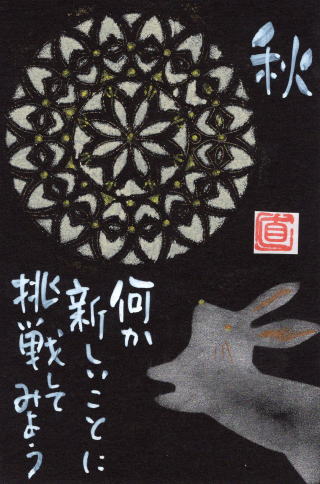 秋
直
何か
新しいことに
挑戦して
みよう